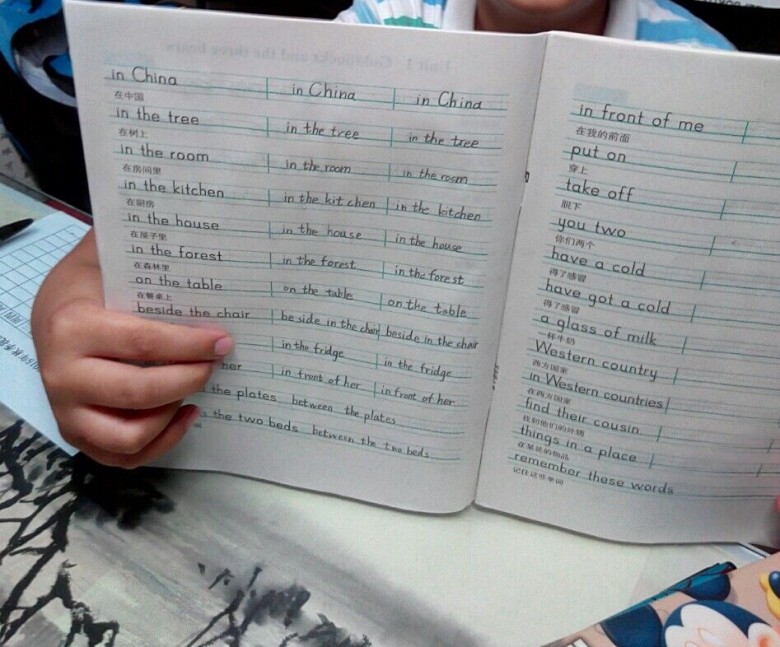 in China in China in China
在中国
in the tree in the tree in the tree
在树上
in the room in the room in the room
在房间里
in the kitchen in the kit chen in the kitchen
在厨房
in the house in the house in the house
在屋子里
in the forest in the forest in the fore st
在森林里
on the table on the table on the table
在餐桌上
beside the chair be side in the chair beside in the chair
in the fridge in the fridge
her in front of her in front of her
the plates between the plates
the two beds between the two beds
in front of me
在我的前面
put on
穿上
take off
脱下
you two
你们两个
have a cold
得了感冒
have got a cold
得了感冒
a glass of milk
一杯牛奶
Western country
西方国家
in Western countries
在西方国家
find their cousin
things in a place
remember these words
记住这些单词